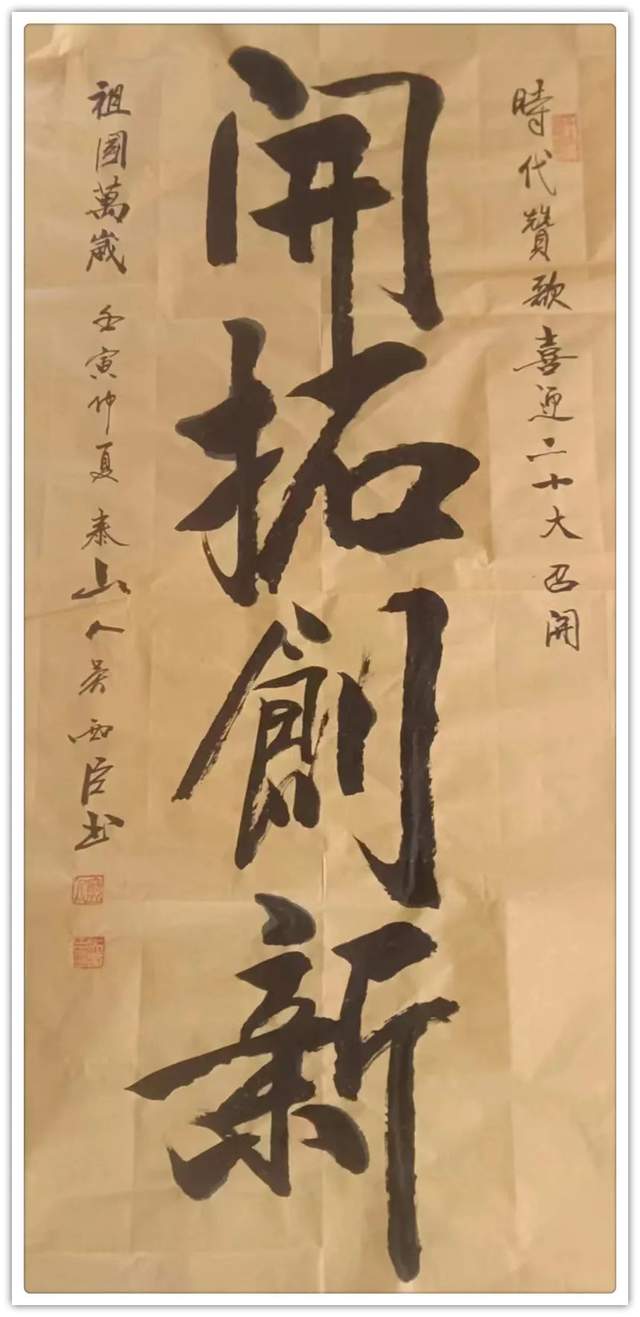 時代贊歌喜迎二十大召開
開拓創新
祖國萬歲 壬寅仲夏 泰山人吴西臣书